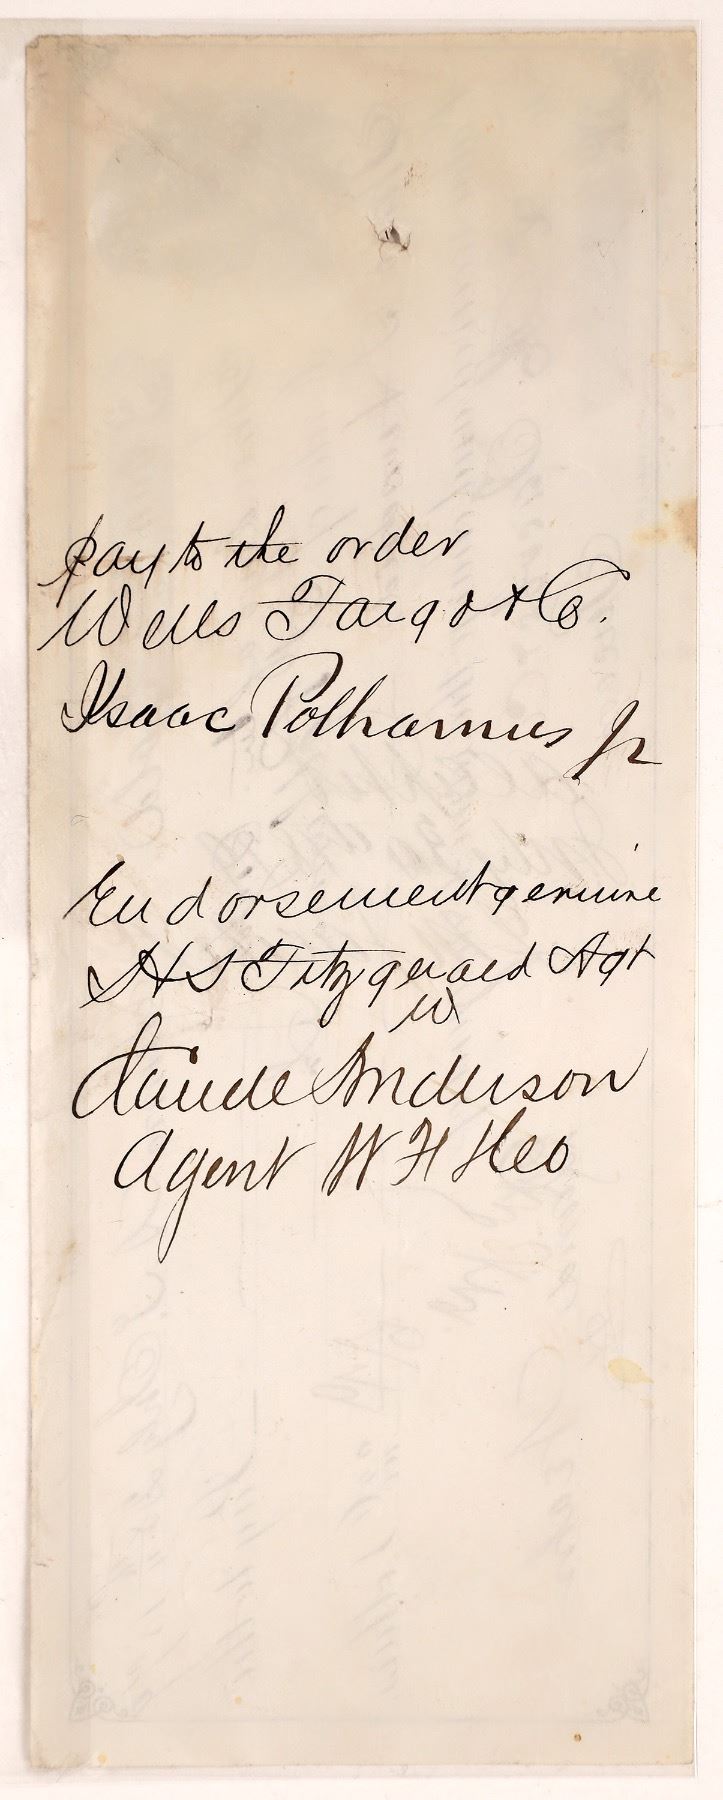 Pay to the order
Wells Fargo & Co.
Isaac Polhamus Jr
Endorsement genuine
H S Fitzgerald Agt
W
Claude Anderson
Agent W F & Co